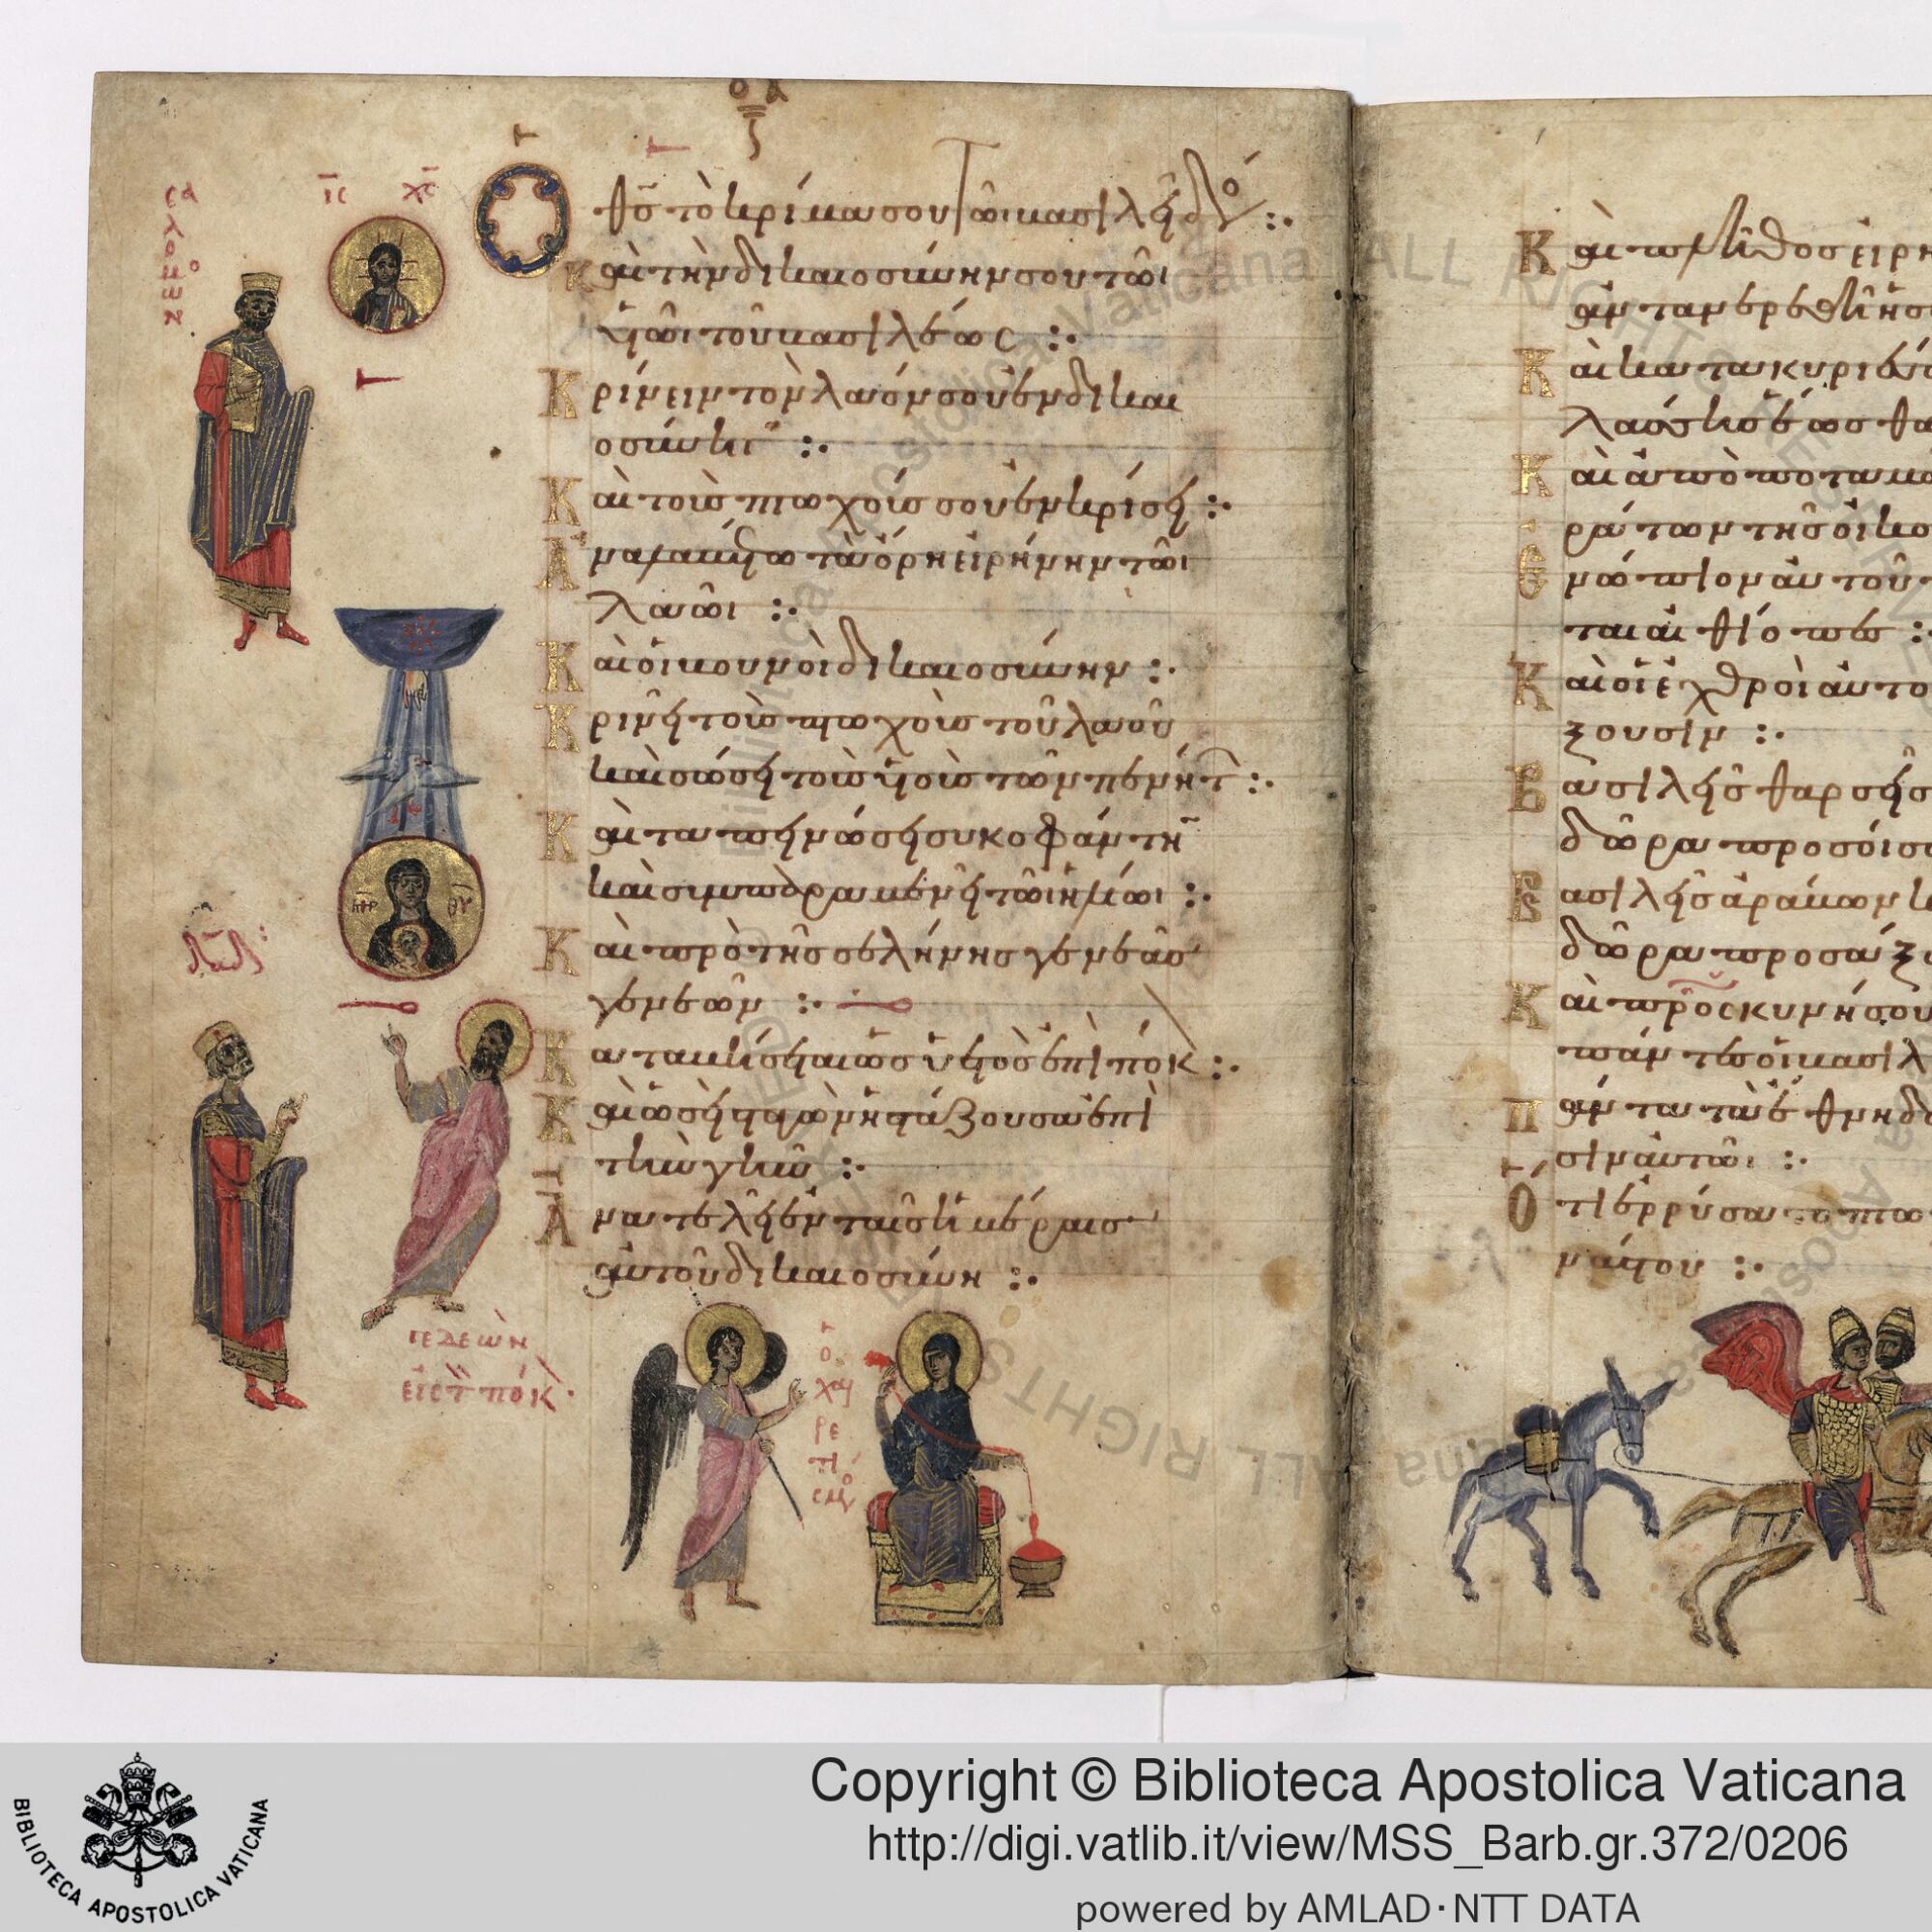 οα
ϛ
Ο θς̅ τὸ κρίμα σου τῶι βασιλεῖ δὸ :·
καὶ τὴν δικαιοσύνην σου τῶι
υἱῶι τοῦ βασιλέως :·
Κρίνειν τὸν λαόν σου ἐν δικαι
οσύνηι :·
Καὶ τοὺς πτωχούς σου ἐν κρίσει :·
Ἀναλαβέτω τὰ ὄρη εἰρήνην τῶι
λαῶι :·
Καὶ οἱ βουνοὶ δικαιοσύνην :·
Κρινεῖ τοὺς πτωχοὺς τοῦ λαοῦ
καὶ σώσει τοὺς υἱοὺς τῶν πενήτ :·
Καὶ ταπεινώσει συκοφάντη
καὶ συμπαραμενεῖ τῶι ἡλίωι :·
Καὶ πρὸ τῆς σελήνης γενεὰς
γενεῶν :·
Καταβήσεται ὡς ὑετὸς ἐπὶ πόκ :·
Καὶ ὡσεὶ σταγὼν ἡ στάζουσα ἐπὶ
τὴν γῆν :·
Ἀνατελεῖ ἐν ταῖς ἡμέραις
αὐτοῦ δικαιοσύνη :·
σαλομων
ις̅ χς̅
μηρ θυ
δαδ
γεδεὼν
εἰς τ πόκ
ὁ χαιρετισμ
Καὶ πλῆθος εἰρη
ἀνταναιρεθῆ
Καὶ κατακυριεύ
λάσσης ἕως θα
Καὶ ἀπὸ ποταμ
ράτων τῆς οἰκο
Ἐνώπιον αὐτοῦ
ται αἰθίοπες :·
Καὶ οἱ ἐχθροὶ αὐτο
ξουσιν :·
Βασιλεῖς θαρσεῖς
δῶρα προσοίσ
Βασιλεῖς ἀράβων κ
δῶρα προσάξ
Καὶ προσκυνήσου
πάντες οἱ βασιλ
Πάντα τὰ ἔθνη δ
σιν αὐτῶι :·
Ὅτι ἐρρύσατο πτω
νάστου :·
Copyright © Biblioteca Apostolica Vaticana
http://digi.vatlib.it/view/MSS_Barb.gr.372/0206
powered by AMLAD·NTT DATA
BIBLIOTECA APOSTOLICA VATICANA